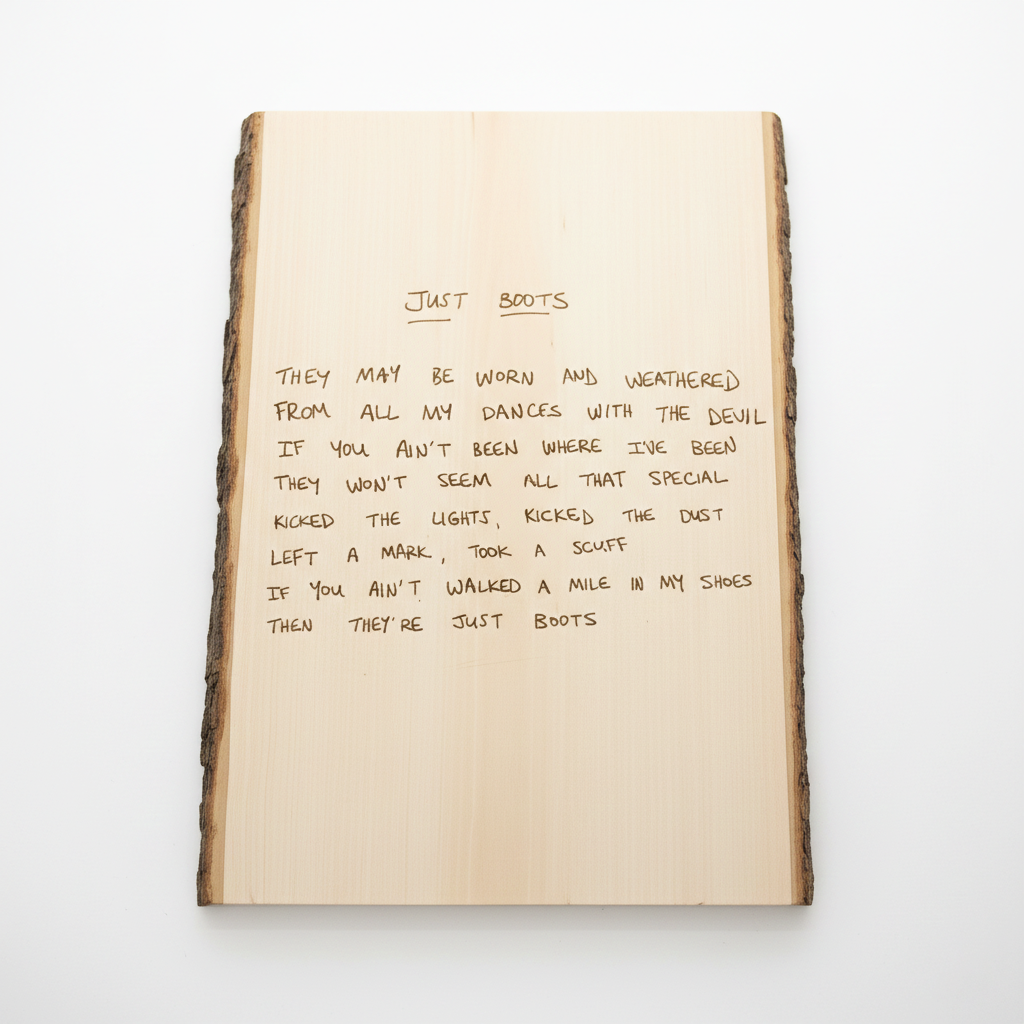 JUST BOOTS
THEY MAY BE WORN AND WEATHERED
FROM ALL MY DANCES WITH THE DEVIL
IF YOU AIN'T BEEN WHERE I'VE BEEN
THEY WON'T SEEM ALL THAT SPECIAL
KICKED THE LIGHTS, KICKED THE DUST
LEFT A MARK, TOOK A SCUFF
IF YOU AIN'T WALKED A MILE IN MY SHOES
THEN THEY'RE JUST BOOTS